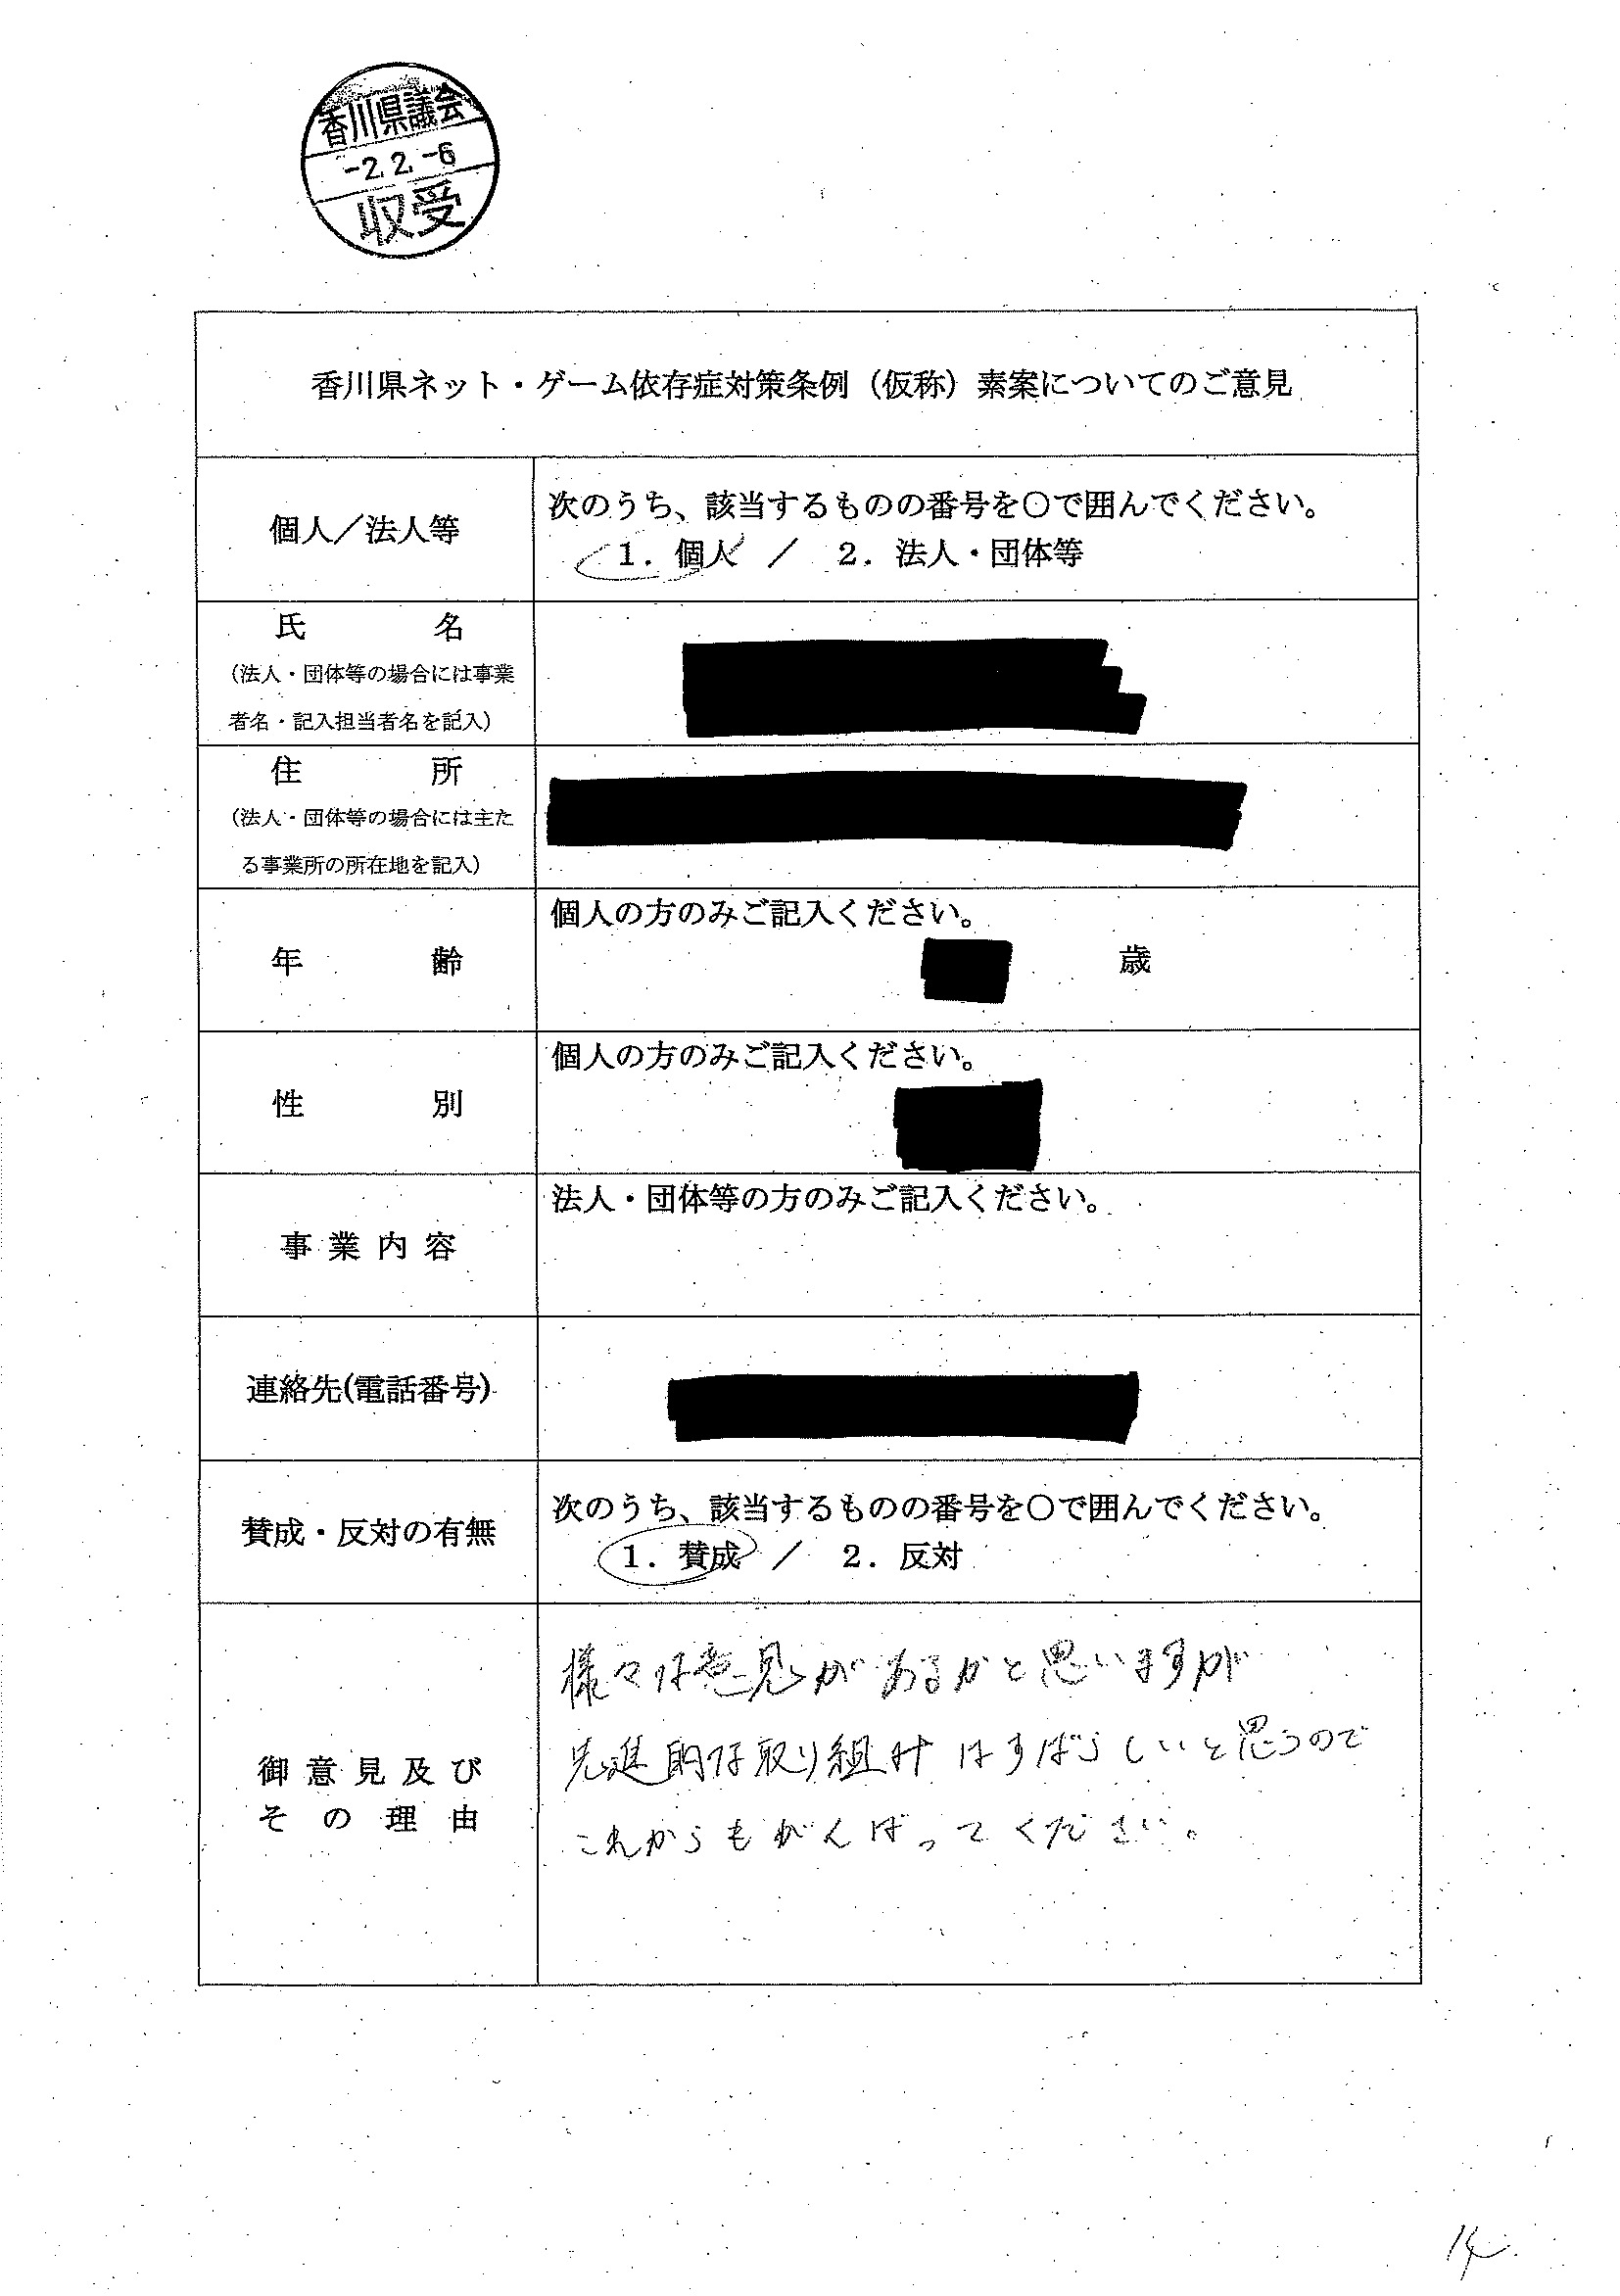 香川県議会
-2.2.-6
収受
香川県ネット・ゲーム依存症対策条例（仮称）素案についてのご意見
個人／法人等
次のうち、該当するものの番号を○で囲んでください。
1．個人 ／ 2．法人・団体等
氏名
（法人・団体等の場合には事業
者名・記入担当者名を記入）
住所
（法人・団体等の場合には主た
る事業所の所在地を記入）
年齢
個人の方のみご記入ください。
歳
性別
個人の方のみご記入ください。
事業内容
法人・団体等の方のみご記入ください。
連絡先(電話番号)
賛成・反対の有無
次のうち、該当するものの番号を○で囲んでください。
1．賛成 ／ 2．反対
御意見及び
その理由
様々な意見があるかと思いますが
先進的な取り組みはすばらしいと思うので
これからもがんばってください。